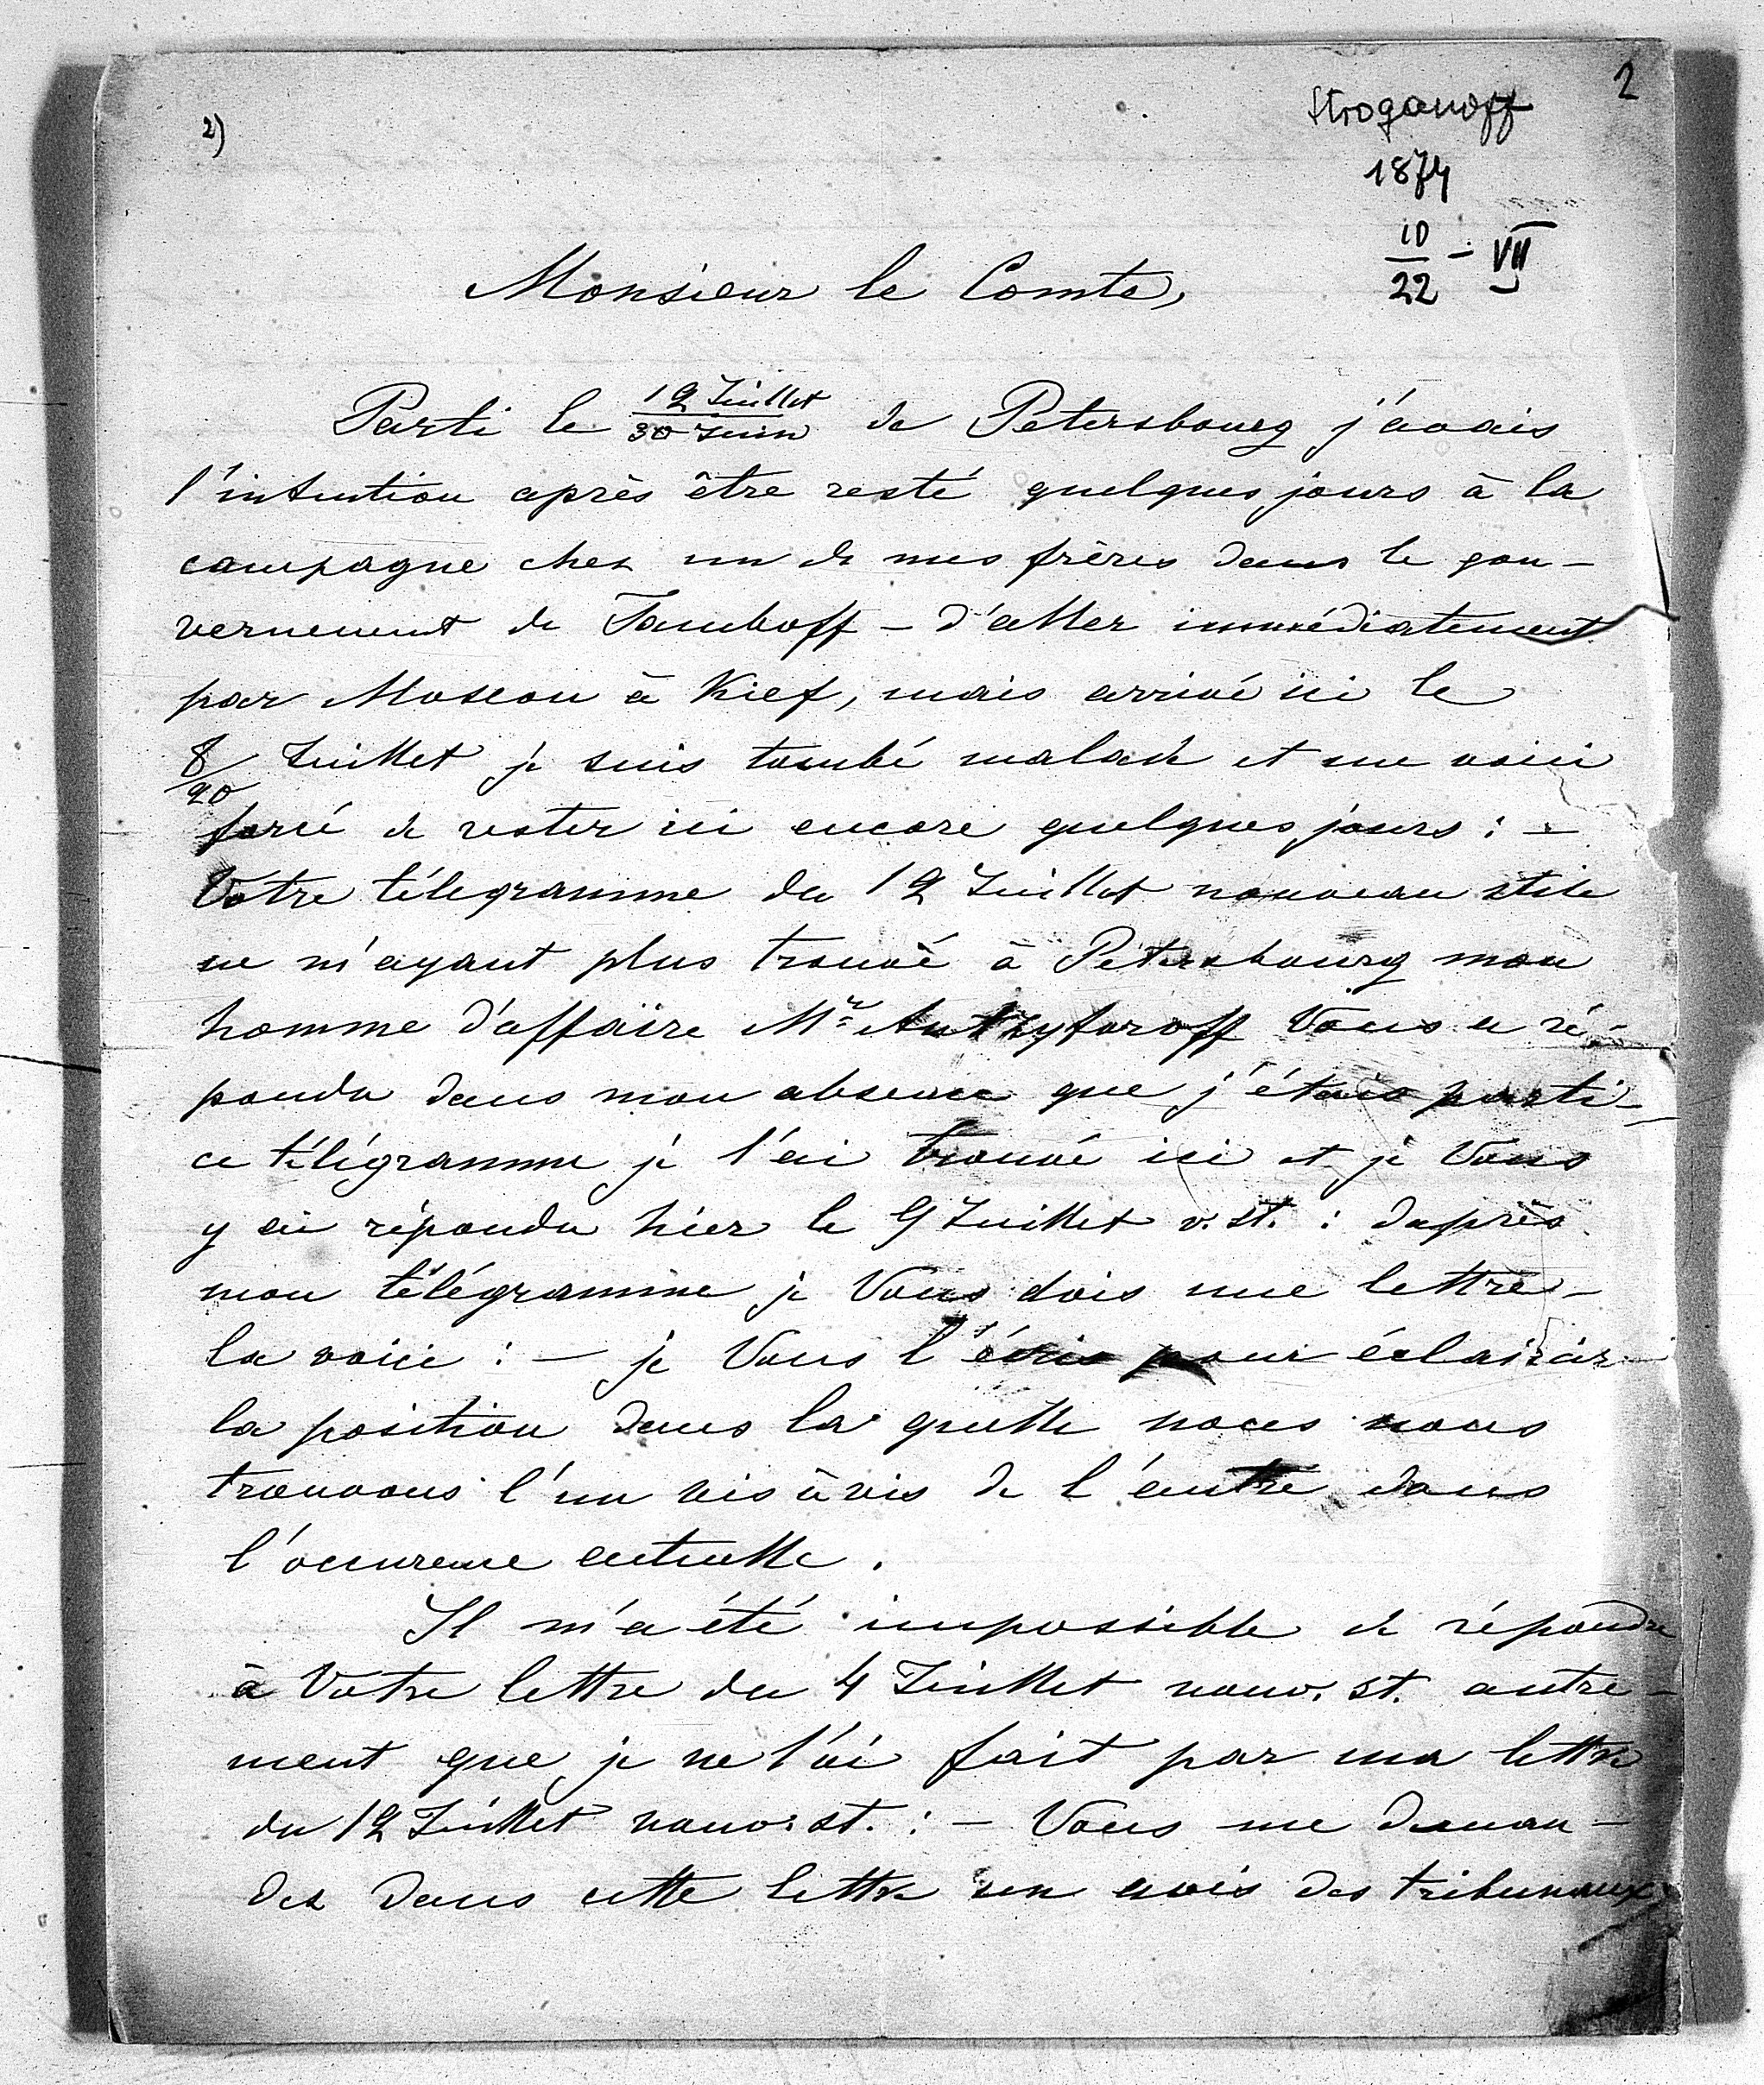 2
Stroganoff
2)
1874
10/22 - VII
Monsieur le Comte,
Parti le 12 Juillet/30 Juin de Petersbourg j'avais
l'intention après être resté quelques jours à la
campagne chez un de mes frères dans le gou-
vernement de Tamboff - d'aller immédiatement
par Moscou à Kief, mais arrivé ici le
8/20 Juillet je suis tombé malade et me voici
forcé de rester ici encore quelques jours : -
Votre télegramme du 12 Juillet nouveau stile
ne m'ayant plus trouvé à Pétersbourg mon
homme d'affaire Mr Vous a ré-
pondu dans mon absence que j'étais parti -
ce télégramme je l'ai trouvé ici et je Vous
y ai répondu hier le 9 Juillet v. st. : daprès
mon télégramme je Vous dois une lettre -
la voici : - je Vous l'écris pour éclairair
la position dans la quelle nous nous
trouvons l'un vis à vis de l'autre dans
l'occurence actuelle.
Il m'a été impossible de répondre
à Votre lettre du 4 Juillet nouv. st. autre-
ment que je ne l'ai fait par ma lettre
du 12 Juillet nouv. st. : - Vous me deman-
dez dans cette lettre un avis des tribunaux